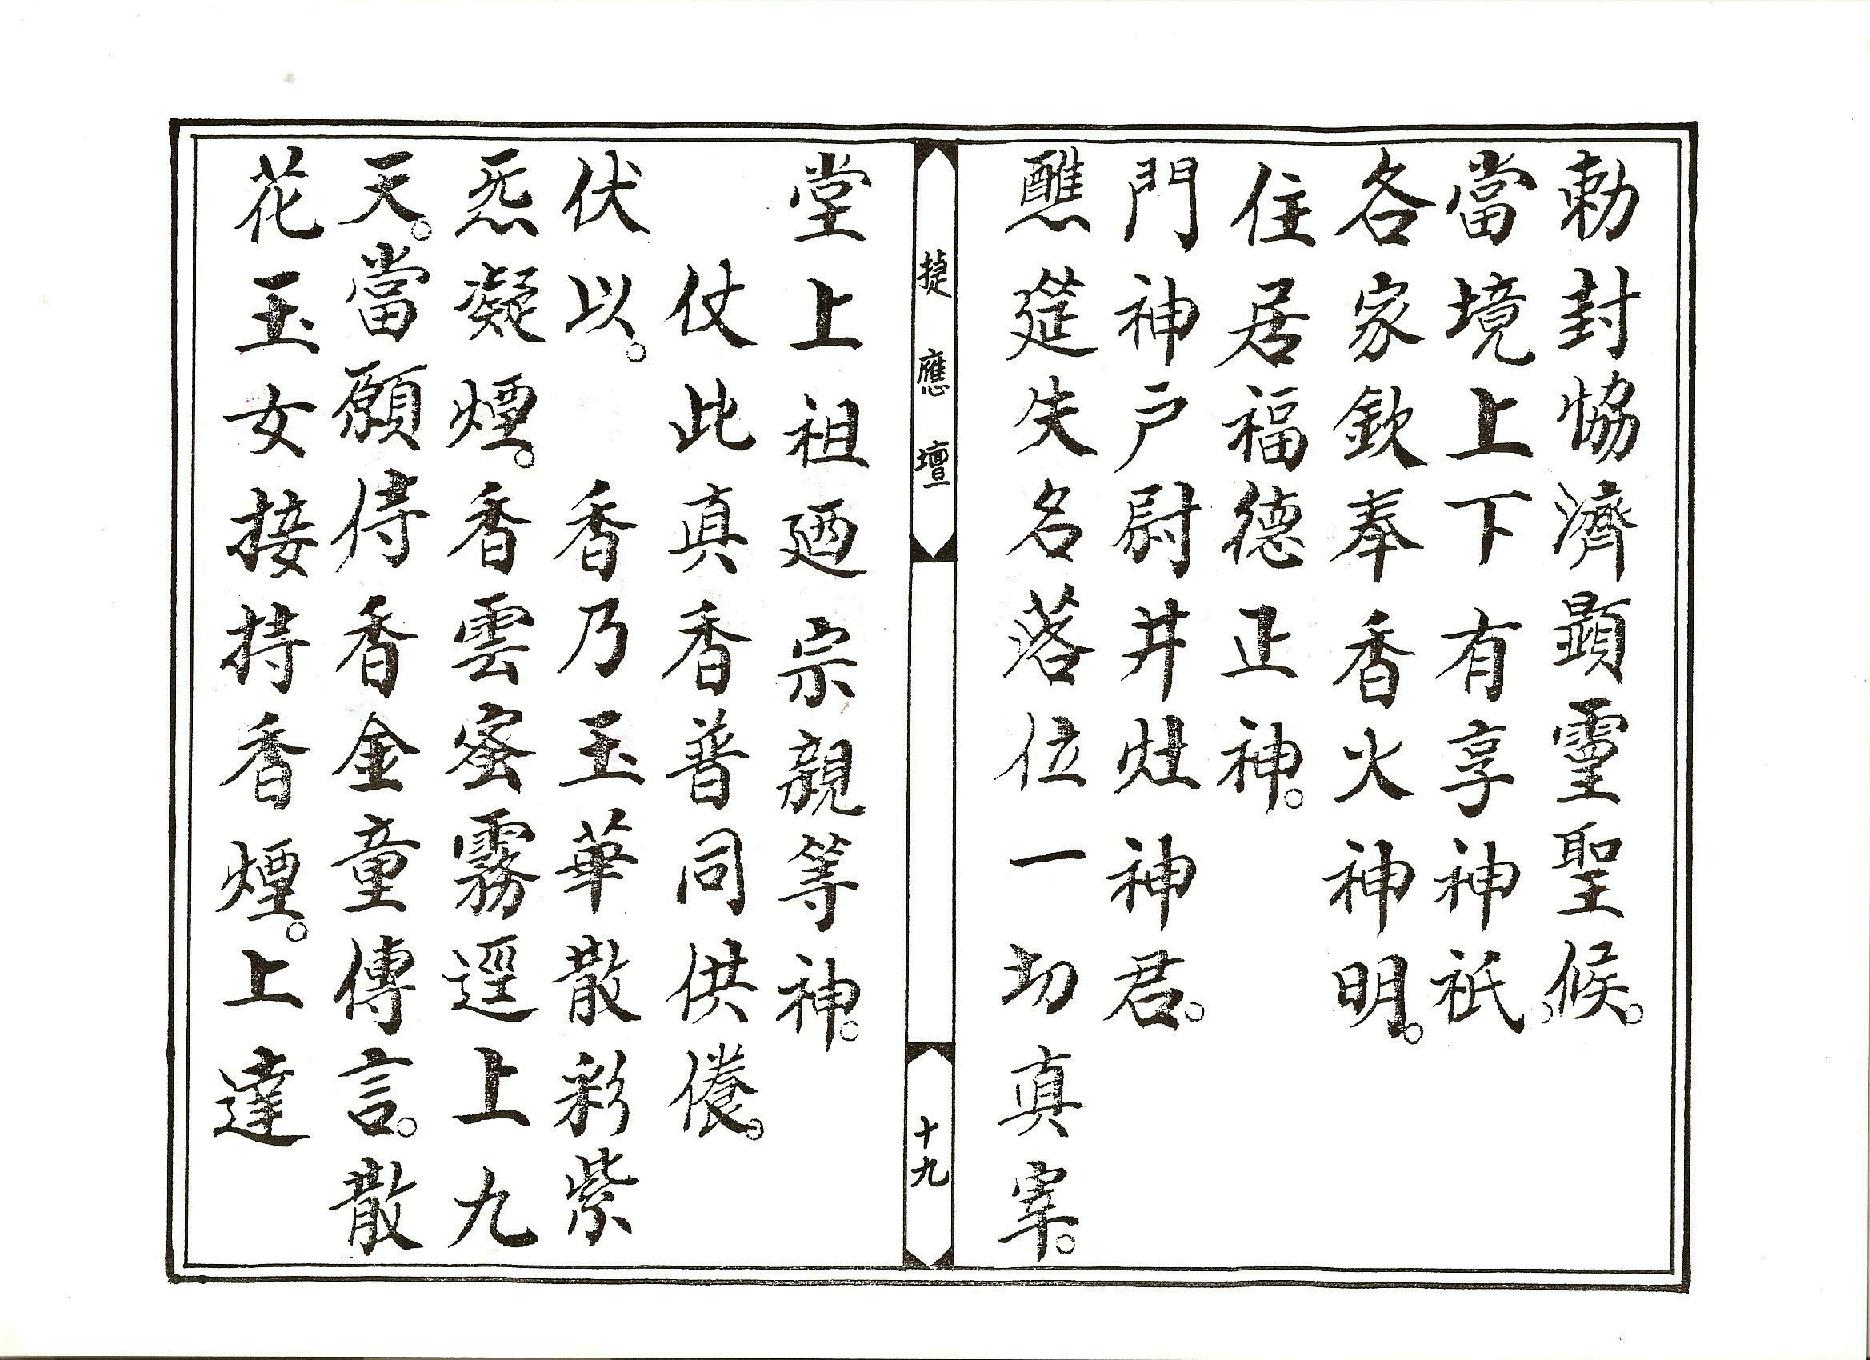 勅封恊濟顕𩆜聖候。
當境上下有享神祇。
各家欽奉香火神明。
住居福德正神。
門神户尉井灶神神君。
醮筵失名落位一切真宰。
捷應壇
十九
堂上祖廼宗親等神。
仗此真香普同供養。
伏以。香乃玉華散彩紫
炁凝煙。香雲蜜霧逕上九
天。當願侍香金童傳言。散
花玉女接持香煙。上達